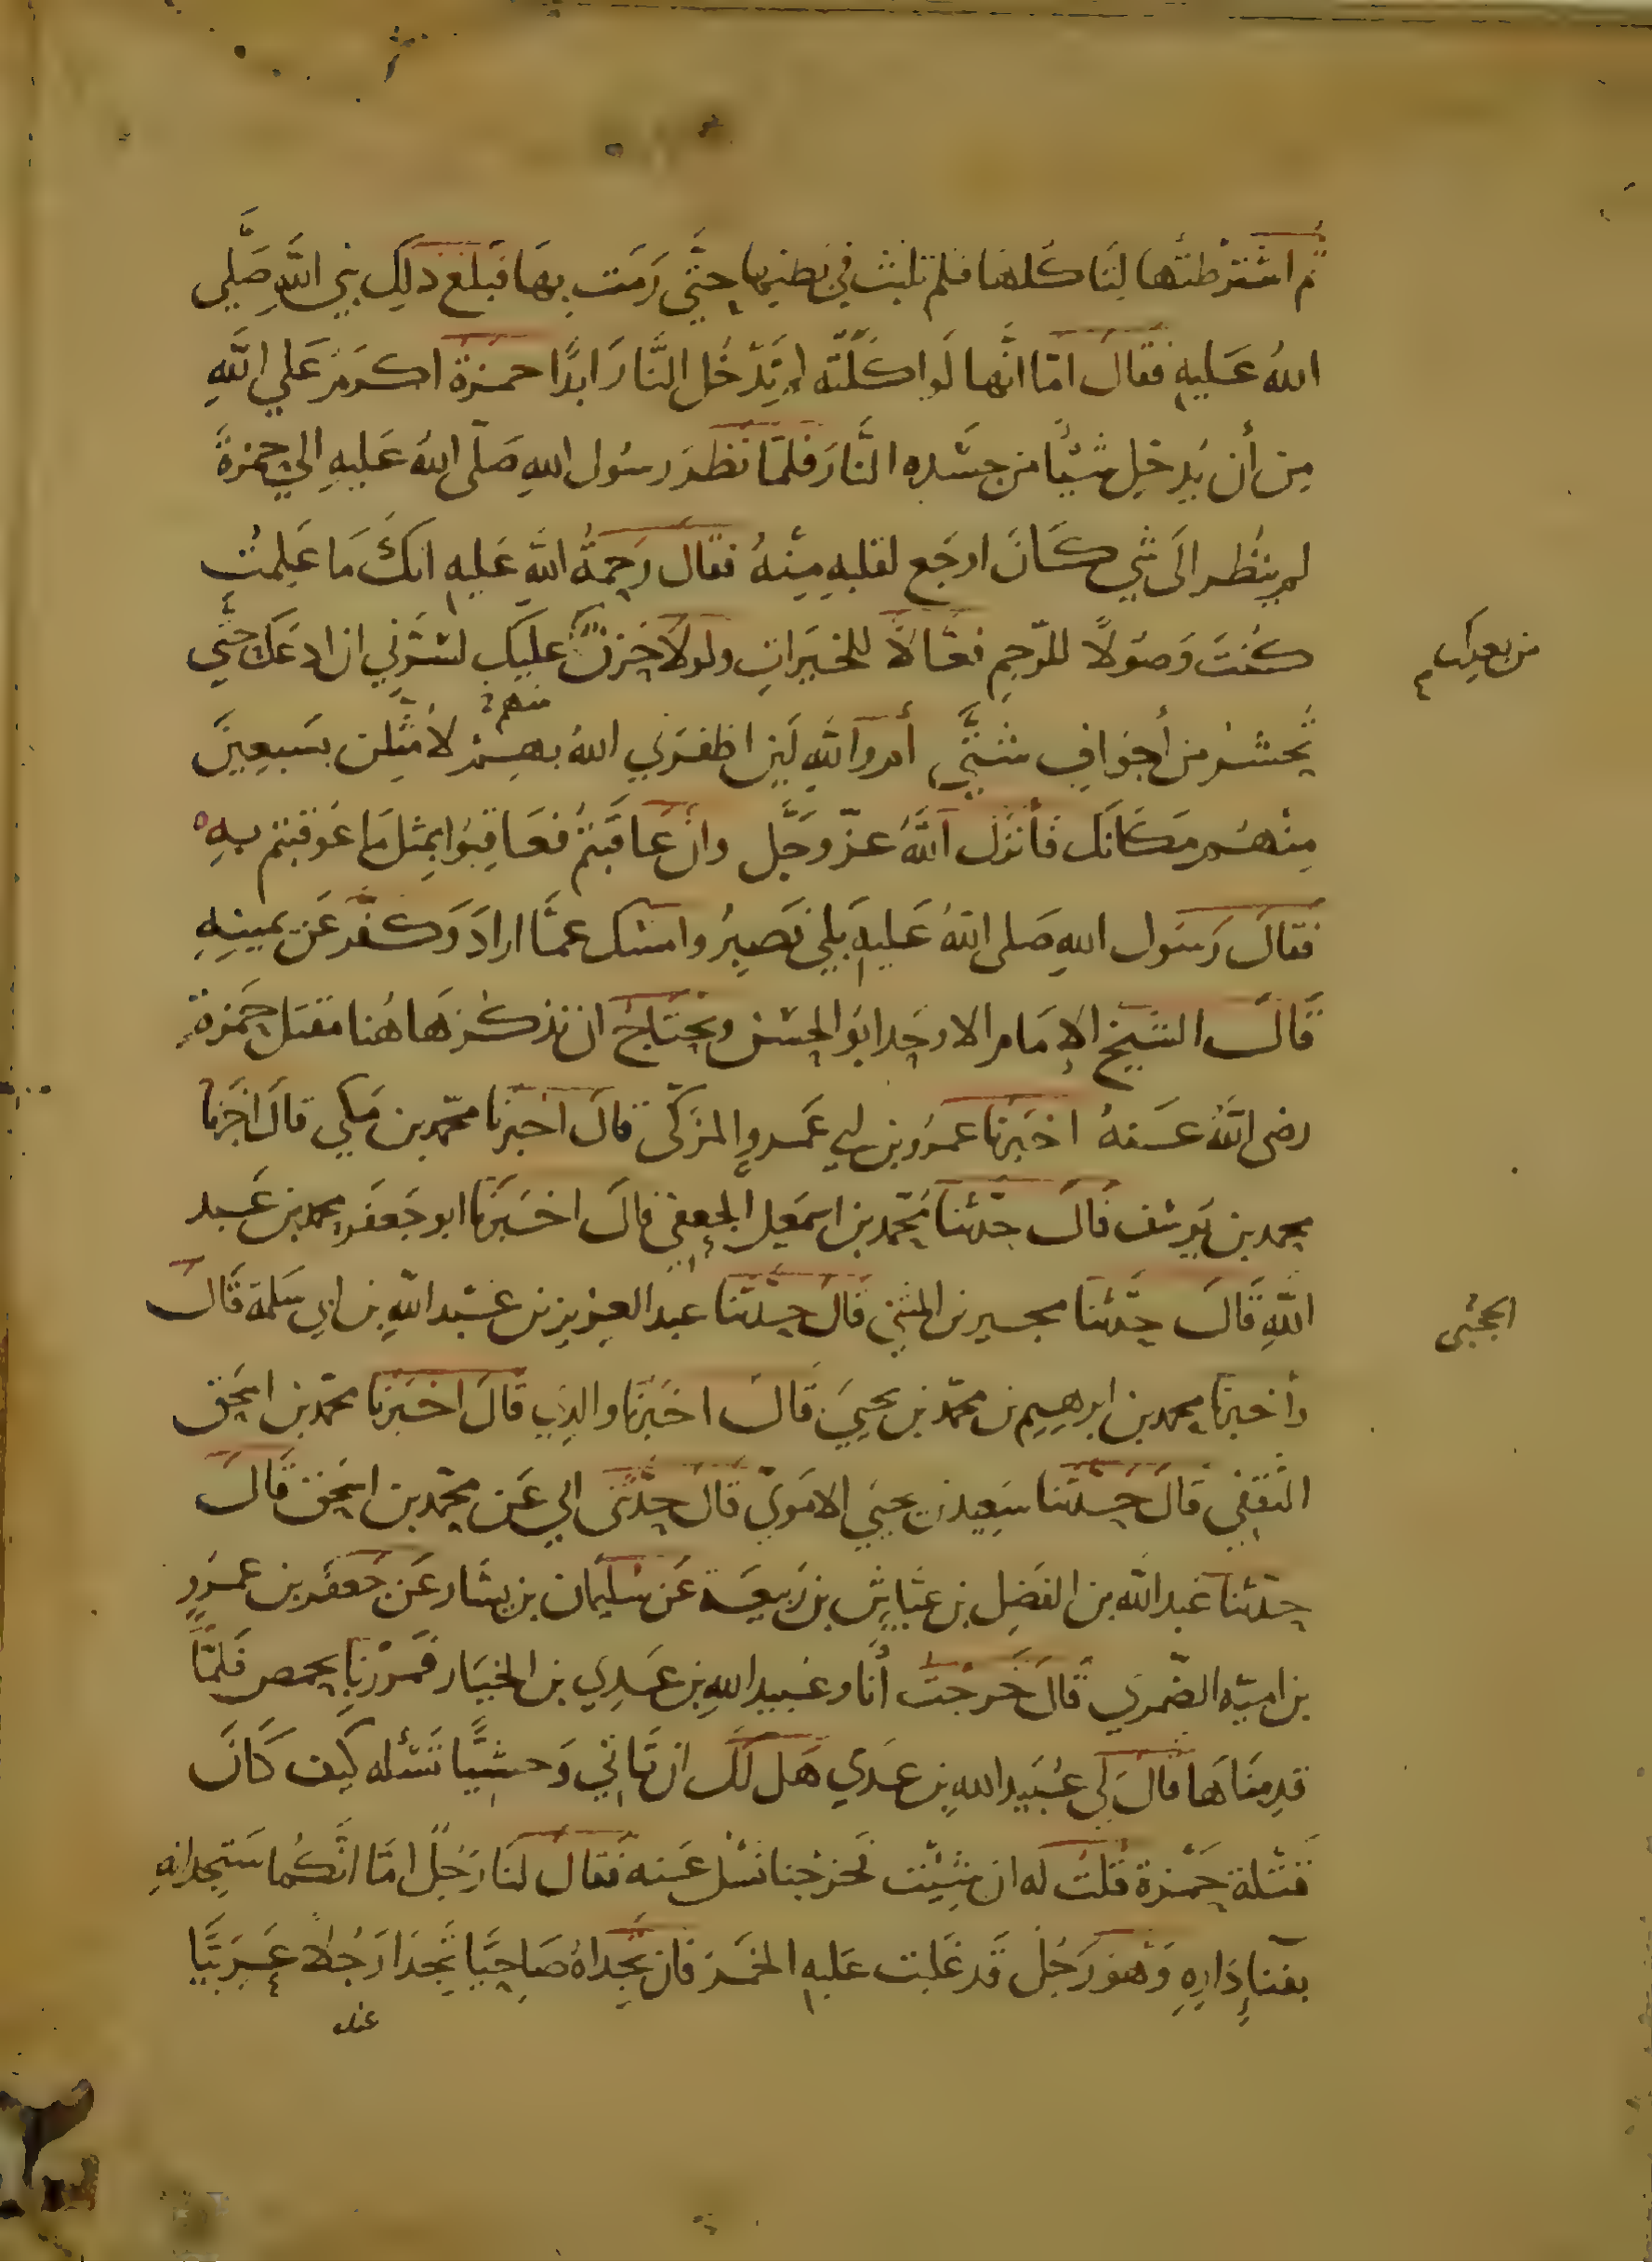 ثم اشترطتها لتأكلها فلم تلبث في بطنها حتى رمت بها فبلغ ذلك نبي الله صلى
الله عليه فقال اما انها لو اكلته لم تدخل النار ابدا حمزة اكرم على الله
من أن يدخل شيئا من جسده النار فلما نظر رسول الله صلى الله عليه الى حمزة
لم ينظر الى شي كان اوجع لقلبه منه فقال رحمة الله عليه انك ما علمت
كنت وصولا للرحم فعالا للخيرات ولولا حزن عليك لسرني ان ادعك حتى
من بعدك
تحشر من أجواف شتى أم والله لين اظفرني الله بهم لأمثلن بسبعين
منهم
منهم مكانك فأنزل الله عز وجل وان عاقبتم فعاقبوا بمثل ما عوقبتم به
فقال رسول الله صلى الله عليه بلى نصبر وامسك عما اراد وكفر عن يمينه
قال الشيخ الإمام الاوحد ابو الحسن ويحتاج ان نذكر هاهنا مقتل حمزة
رضى الله عنه اخبرنا عمرو بن ابي عمرو المزكى قال اخبرنا محمد بن مكي قال اخبرنا
محمد بن يوسف قال حدثنا محمد بن اسمعيل الجعفي قال اخبرنا ابو جعفر محمد بن عبد
الله قال حدثنا حجين بن المثنى قال حدثنا عبد العزيز بن عبد الله بن ابي سلمة قال
وأخبرنا محمد بن ابرهيم بن محمد بن يحيى قال اخبرنا والدي قال اخبرنا محمد بن اسحق
الثقفي قال حدثنا سعيد بن يحيى الاموي قال حدثنى ابي عن محمد بن اسحق قال
حدثنا عبد الله بن الفضل بن عباس بن ربيعة عن سليمان بن يسار عن جعفر بن عمرو
بن امية الضمري قال خرجت أنا وعبيد الله بن عدي بن الخيار فمررنا بحمص فلما
قدمناها قال لي عبيد الله بن عدي هل لك ان تاتي وحشيا نسئله كيف كان
قتله حمزة قلت له ان شيت فخرجنا نسئل عنه فقال لنا رجل اما انكما ستجدانه
بفناء داره وهو رجل قد غلبت عليه الخمر فان تجداه صاحيا تجدا رجلا عربيا
عنده